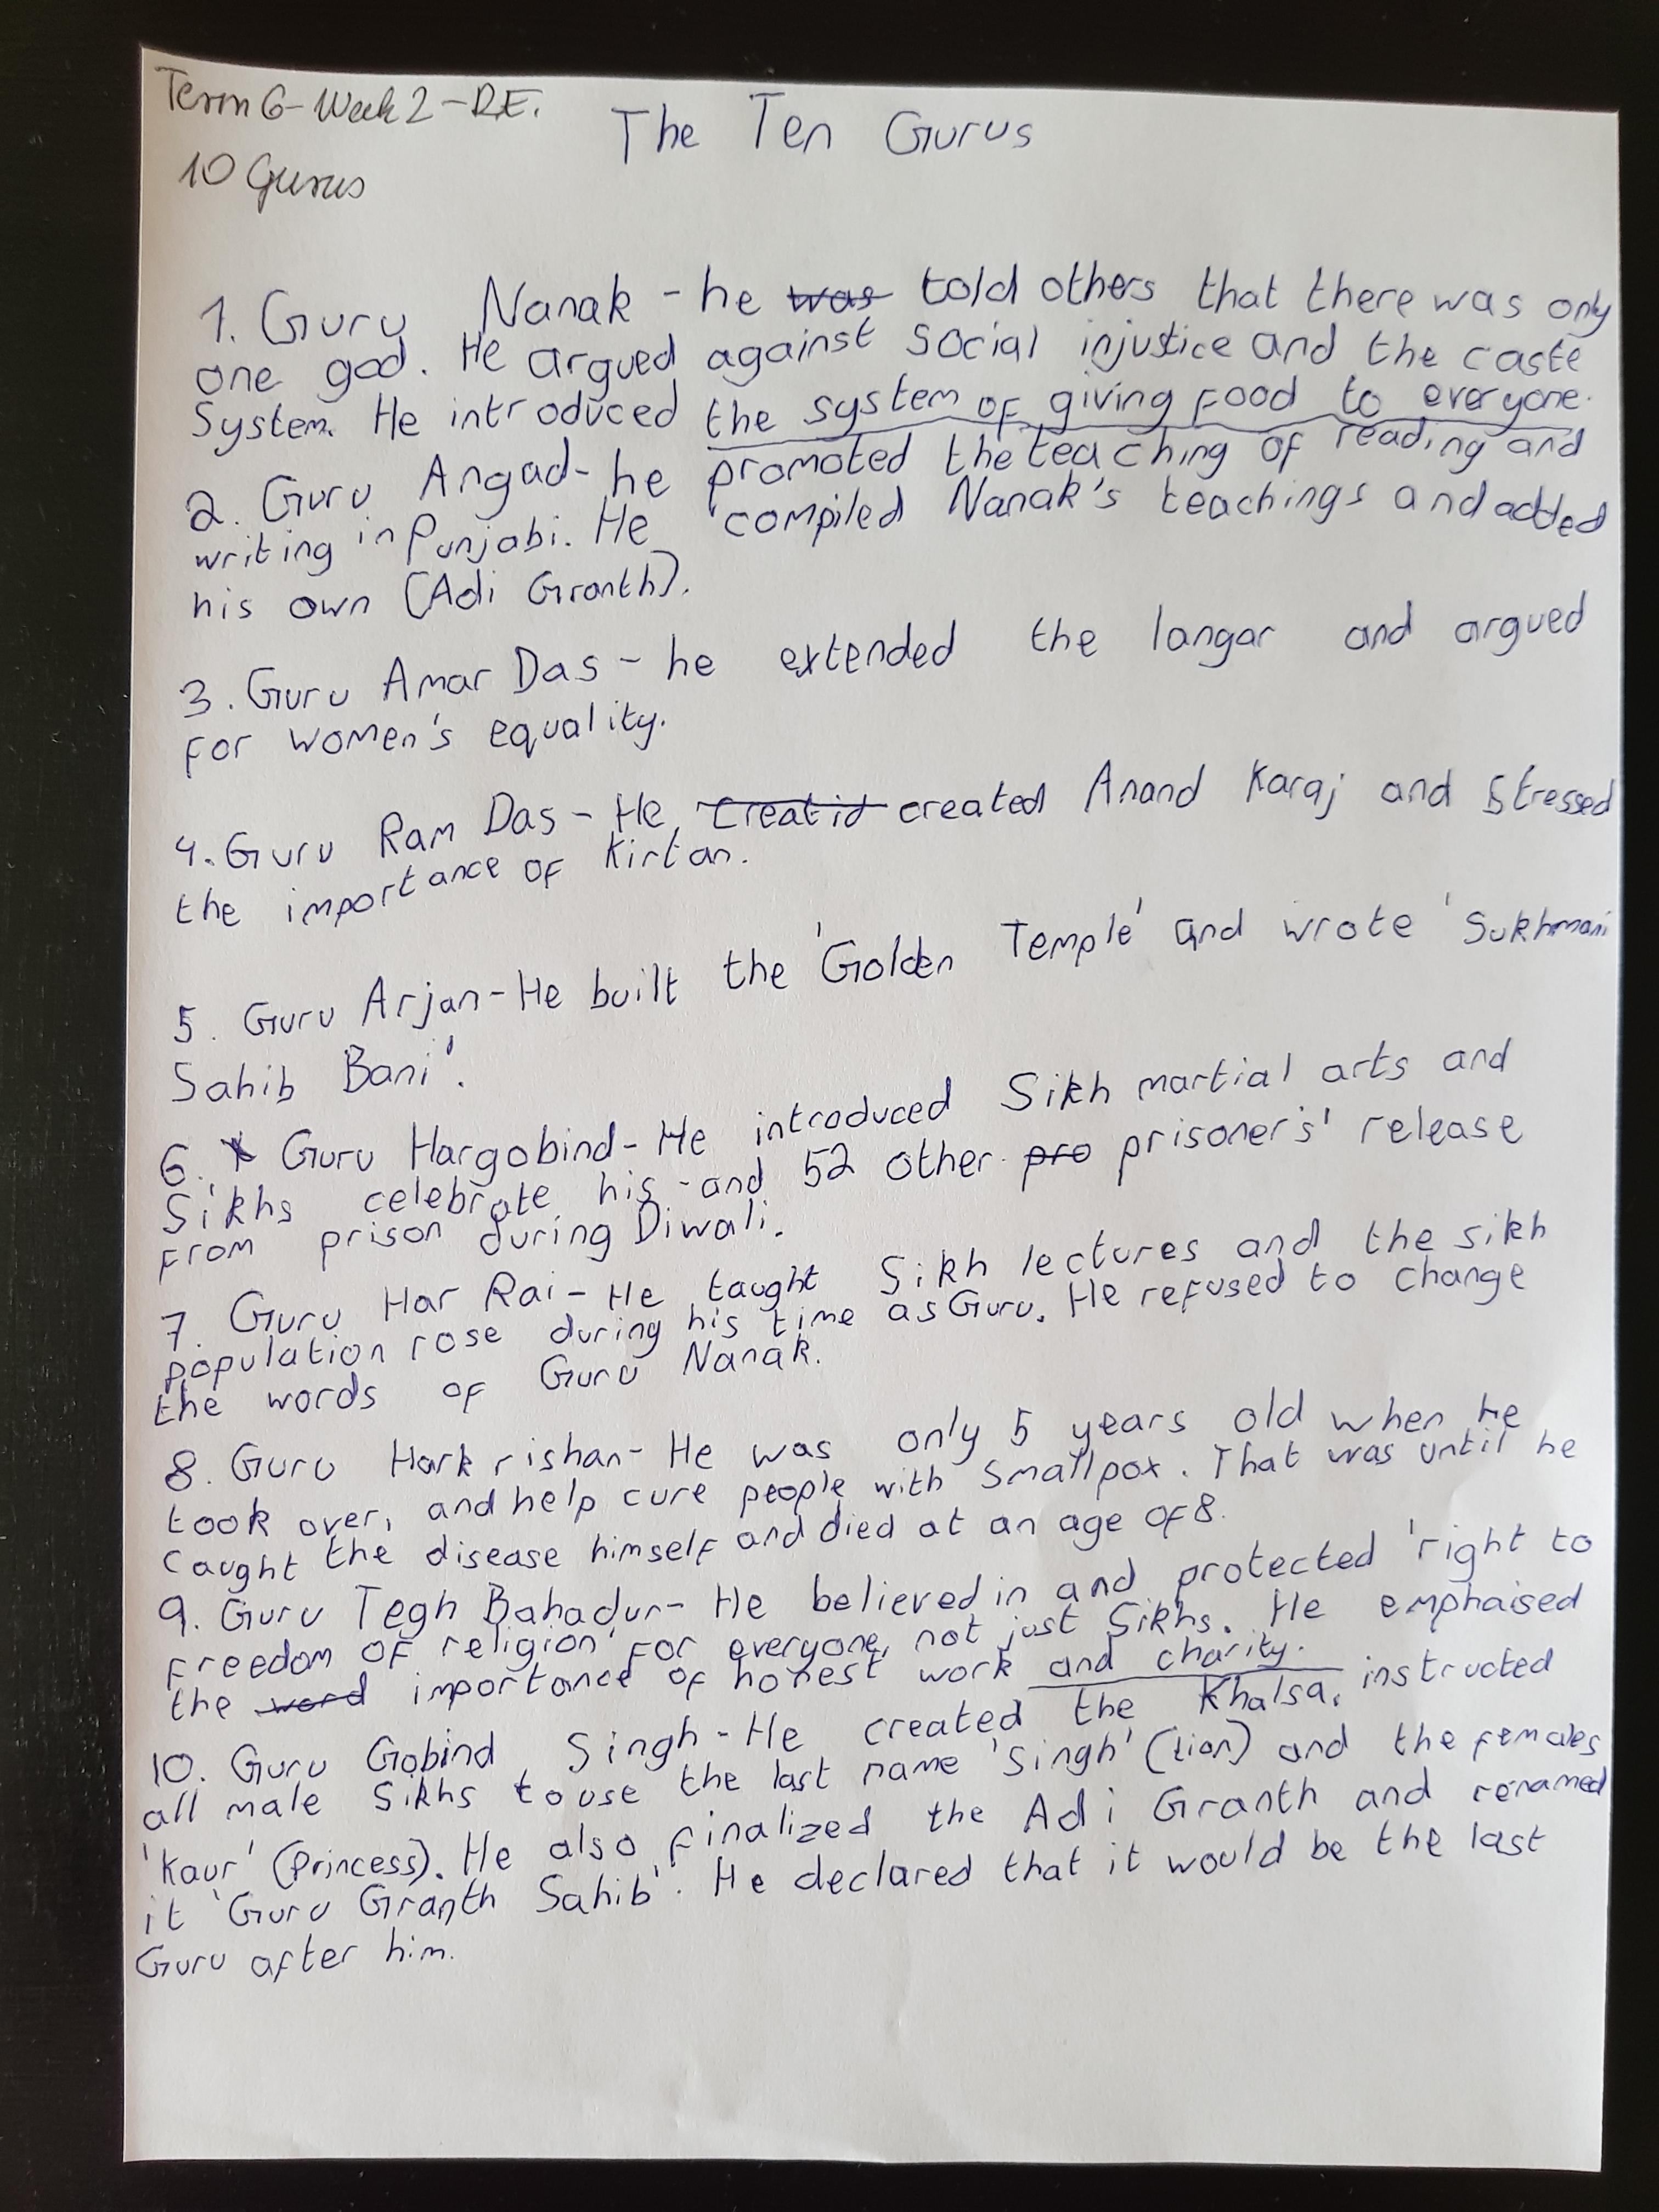 Term 6 - Week 2 - R.E.
10 Gurus
The Ten Gurus
1. Guru Nanak - he was told others that there was only
one god. He argued against social injustice and the caste
system. He introduced the system of giving food to everyone.
2. Guru Angad - he promoted the teaching of reading and
writing in Punjabi. He compiled Nanak's teachings and added
his own (Adi Granth).
3. Guru Amar Das - he extended the langar and argued
for women's equality.
4. Guru Ram Das - He creatid created Anand Karaj and stressed
the importance of Kirtan.
5. Guru Arjan - He built the 'Golden Temple' and wrote 'Sukhmani
Sahib Bani'.
6. Guru Hargobind - He introduced Sikh martial arts and
Sikhs celebrate his - and 52 other pro prisoner's' release
from prison during Diwali.
7. Guru Har Rai - He taught Sikh lectures and the sikh
population rose during his time as Guru. He refused to change
the words of Guru Nanak.
8. Guru Harkrishan - He was only 5 years old when he
took over, and help cure people with smallpox. That was until he
caught the disease himself and died at an age of 8.
9. Guru Tegh Bahadur - He believed in and protected 'right to
freedom of religion' for everyone, not just Sikhs. He emphaised
the word importance of honest work and charity.
10. Guru Gobind Singh - He created the Khalsa, instructed
all male Sikhs to use the last name 'Singh' (lion) and the females
'Kaur' (Princess). He also finalized the Adi Granth and renamed
it 'Guru Granth Sahib'. He declared that it would be the last
Guru after him.